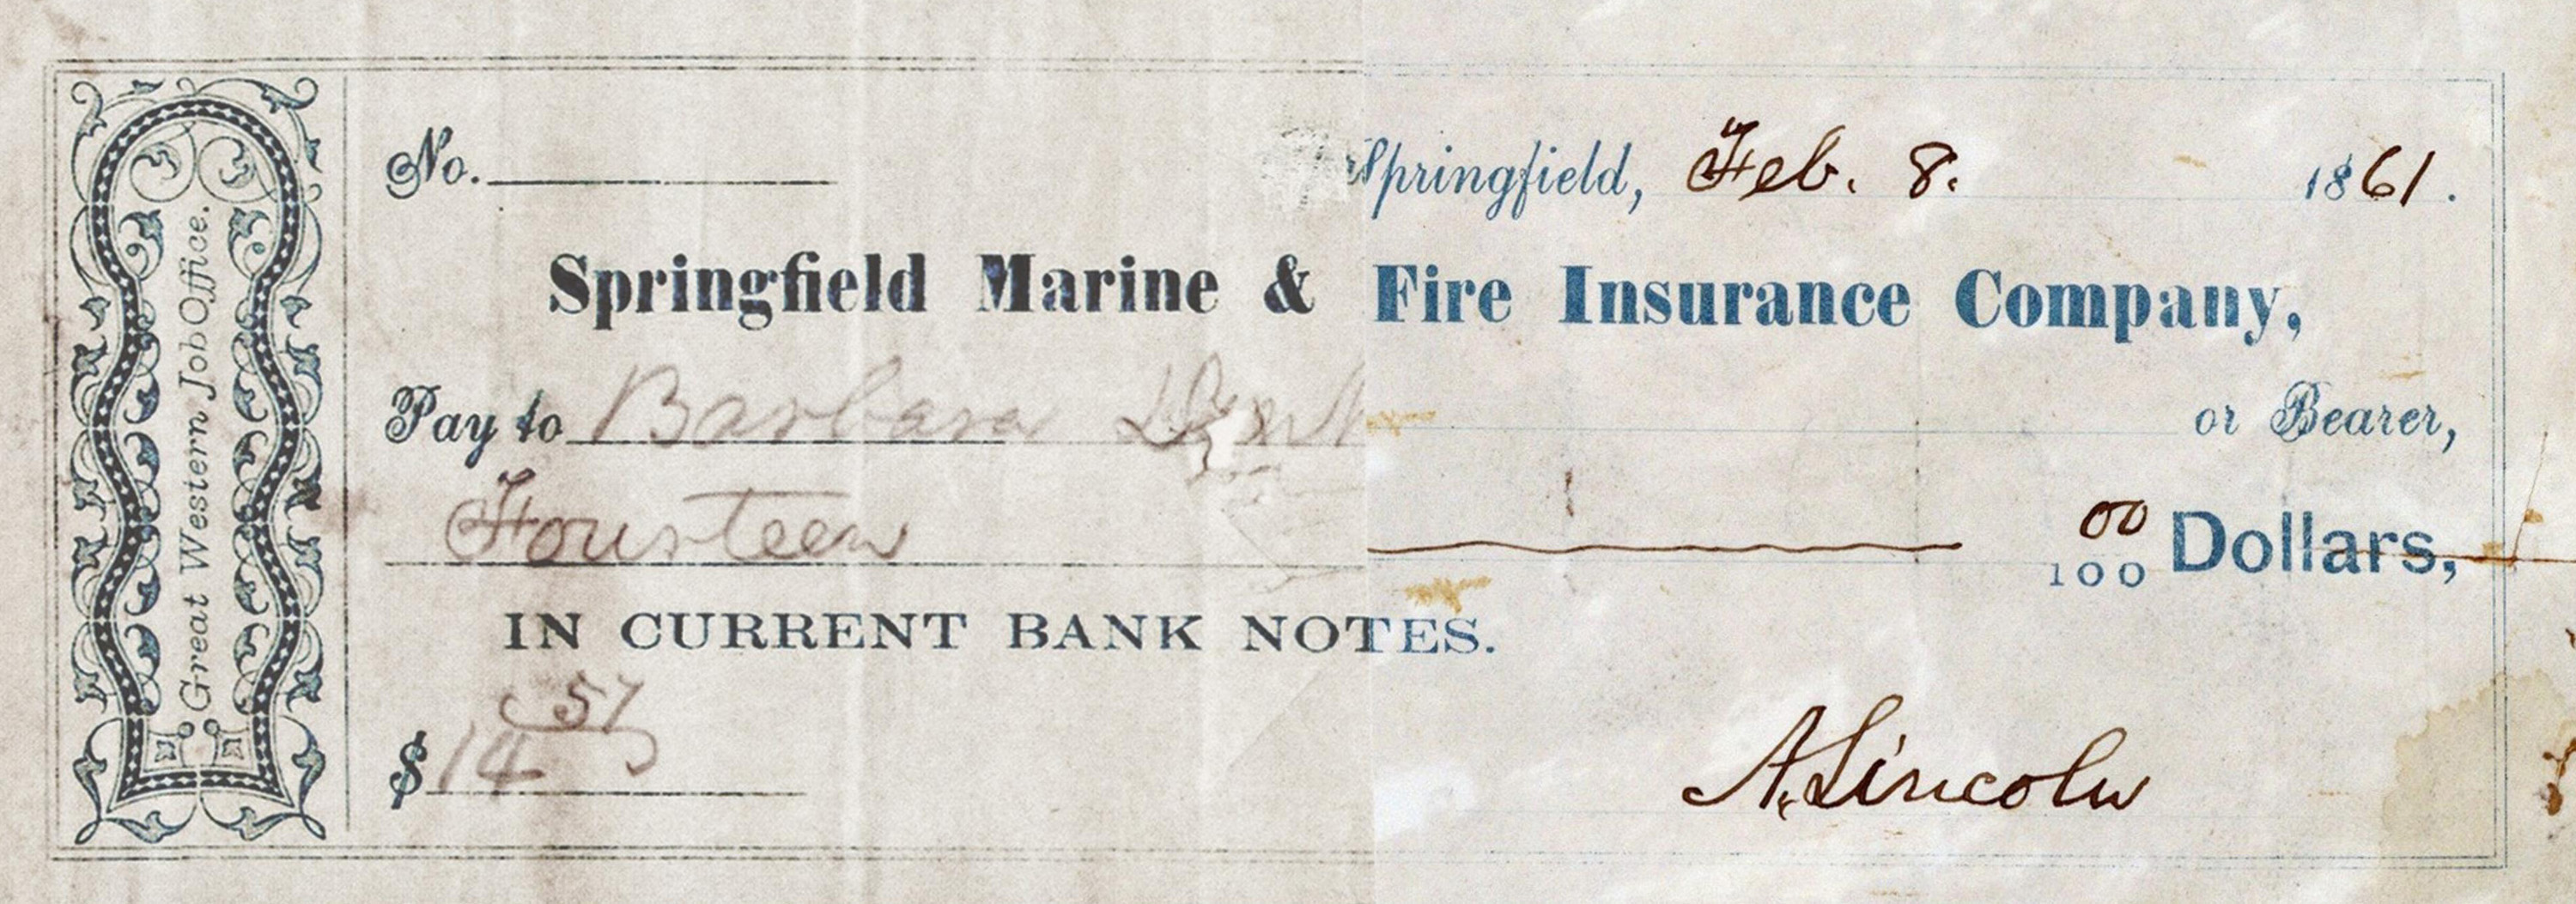 Great Western Job Office.
No. Springfield, Feb. 8. 1861.
Springfield Marine & Fire Insurance Company,
Pay to Barbara or Bearer,
Fourteen 00/100 Dollars,
IN CURRENT BANK NOTES.
$14 57
A. Lincoln